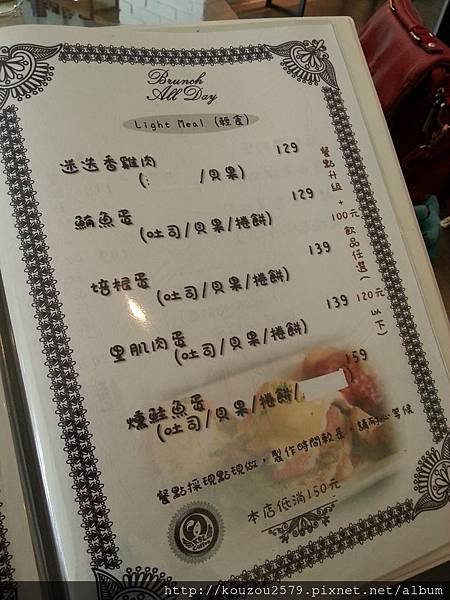 Brunch
All Day
Light Meal (輕食)
迷迭香雞肉 129
(: /貝果)
鮪魚蛋 129
(吐司/貝果/捲餅)
培根蛋 139
(吐司/貝果/捲餅)
里肌肉蛋 139
(吐司/貝果/捲餅)
燻鮭魚蛋 159
(吐司/貝果/捲餅/
餐點升級+100元飲品任選(120元以下)
餐點採現點現做,製作時間較長,請耐心等候
本店低消150元
http://kouzou2579.pixnet.net/album